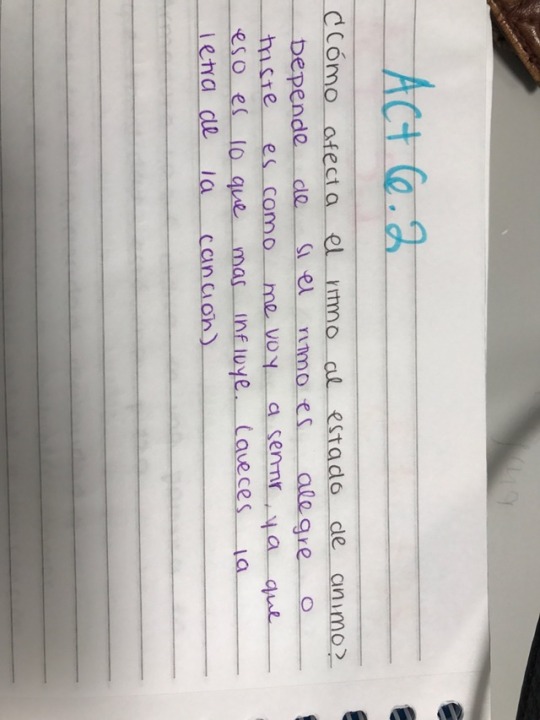 Act 6.2
¿Cómo afecta el ritmo al estado de animo?
Depende de si el ritmo es alegre o
triste es como me voy a sentir, ya que
eso es lo que mas influye. (aveces la
letra de la canción)